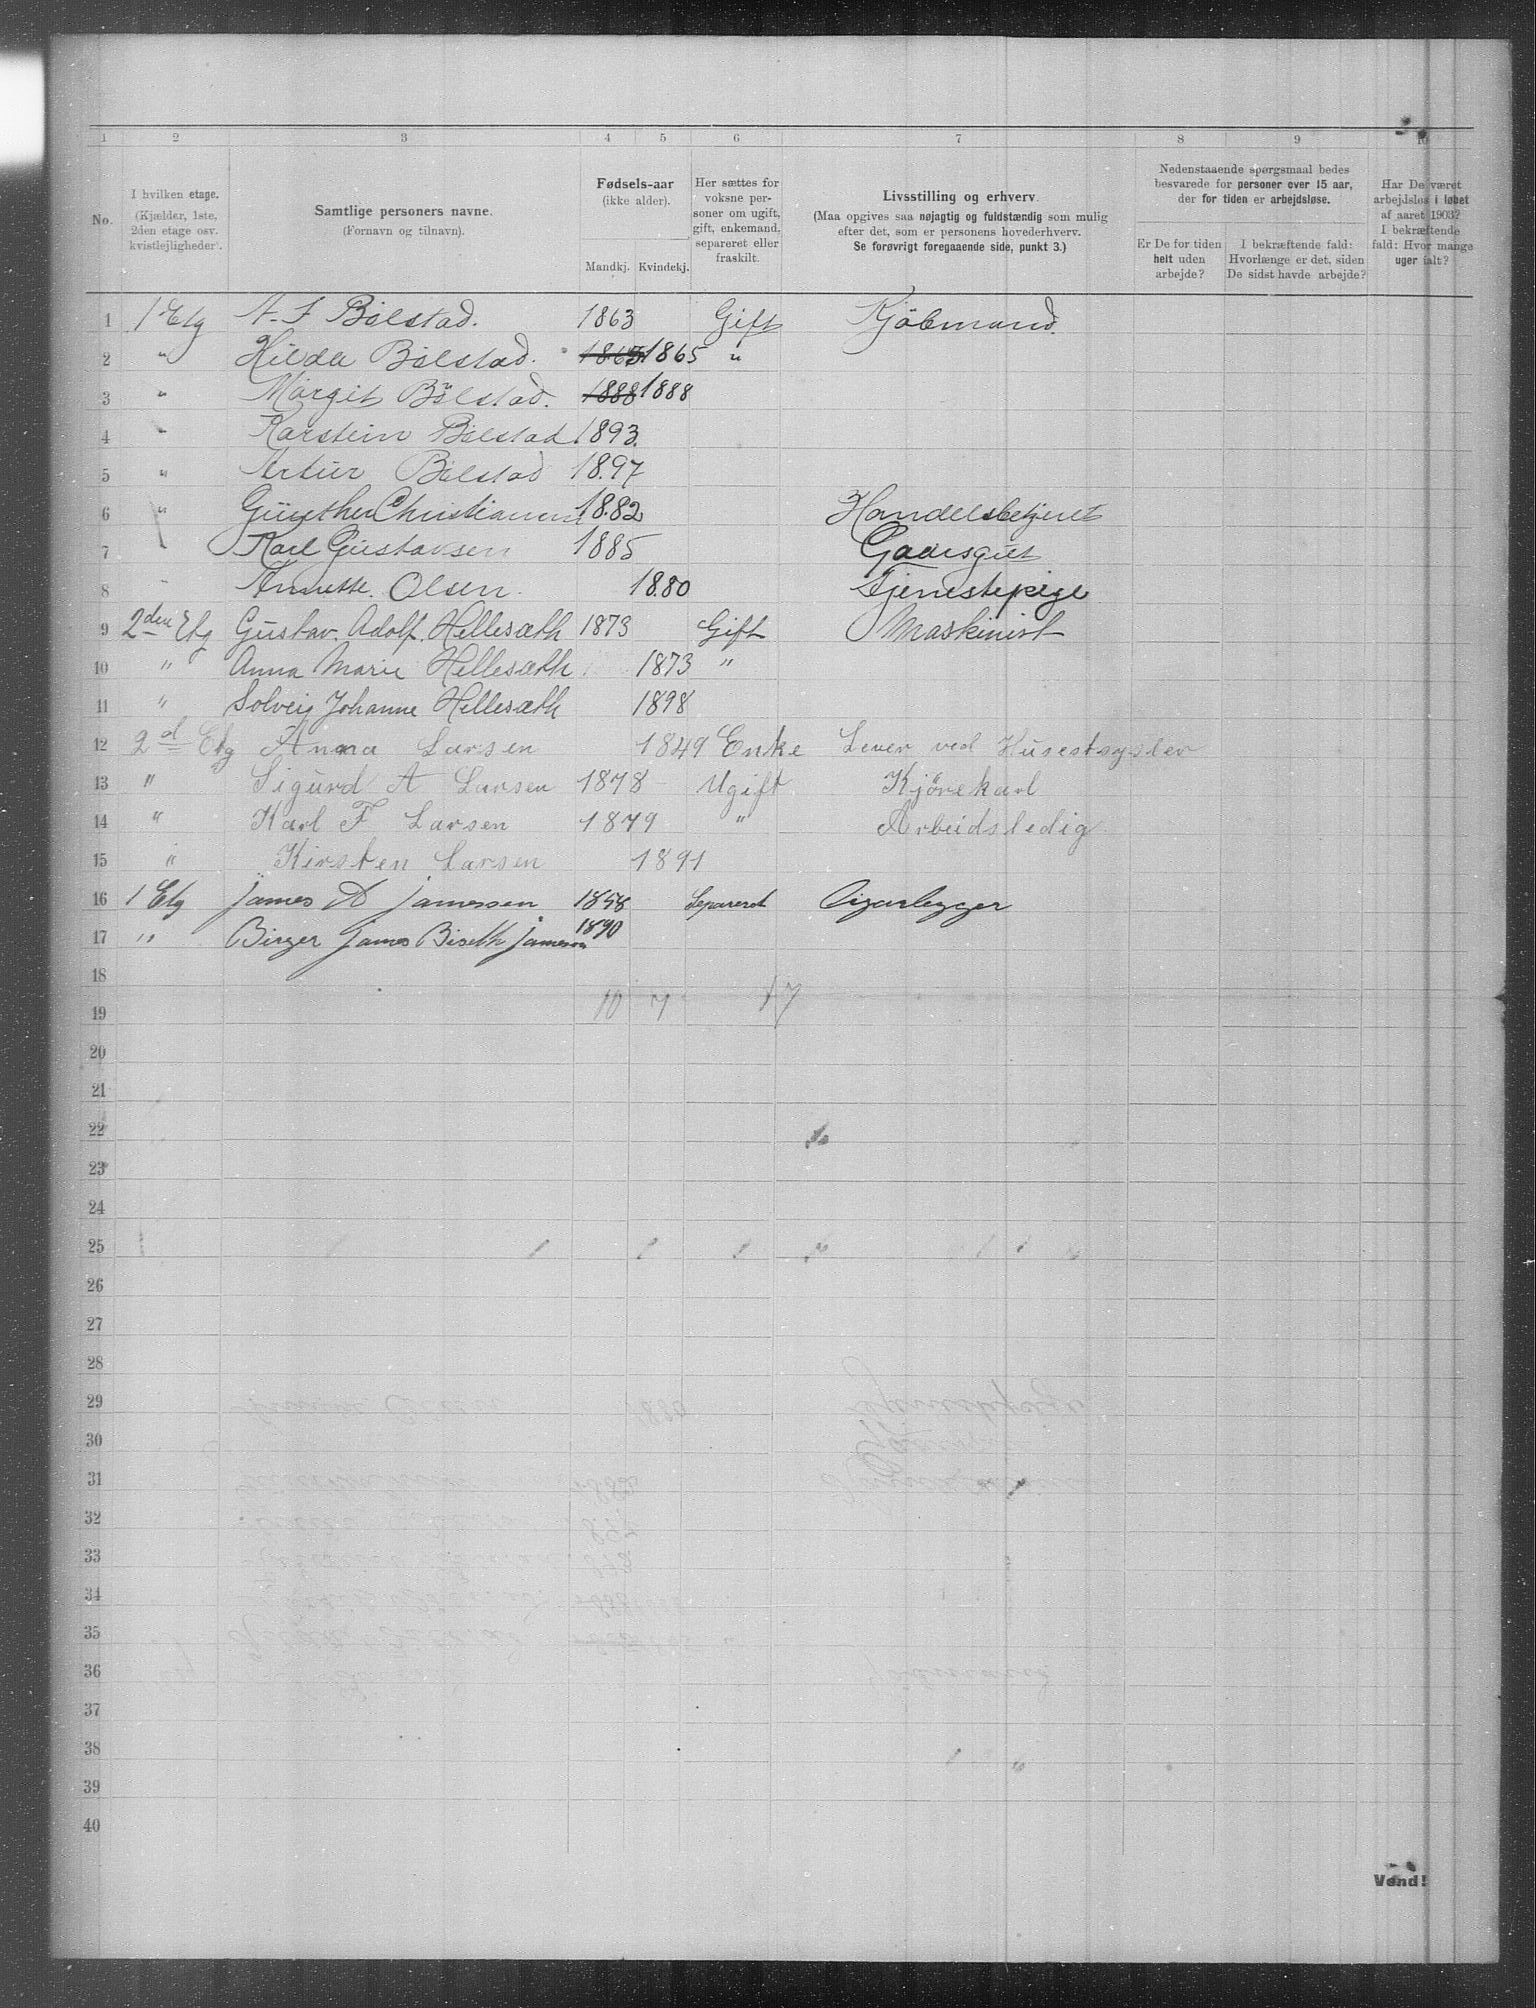 1 2 3 4 5 6 7 8 9 10
No.
I hvilken etage.
(Kjælder, 1ste,
2den etage osv.
kvistlejligheder).
Samtlige personers navne.
(Fornavn og tilnavn).
Fødsels-aar
(ikke alder).
Mandkj. Kvindekj.
Her sættes for
voksne per-
soner om ugift,
gift, enkemand,
separeret eller
fraskilt.
Livsstilling og erhverv.
(Maa opgives saa nøjagtig og fuldstændig som mulig
efter det, som er personens hovederhverv.
Se forøvrigt foregaaende side, punkt 3.)
Nedenstaaende spørgsmaal bedes
besvarede for personer over 15 aar,
der for tiden er arbejdsløse.
Er De for tiden
helt uden
arbejde?
I bekræftende fald:
Hvorlænge er det, siden
De sidst havde arbejde?
Har De været
arbejdsløs i løbet
af aaret 1903?
I bekræftende
fald: Hvor mange
uger ialt?
1 1 Etg A. J Bølstad. 1863 Gift Kjöbmand.
2 " Hilda Bølstad. 1865 1865 "
3 " Margit Bølstad. 1888 1888
4 " Karstein Bølstad 1893.
5 " Artur Bølstad 1897
6 " Günther Christiansen 1882 Handelsbetjent
7 Karl Gustavsen 1885 Gaardsgut
8 " Annette. Olsen. 1880 Tjenestepige
9 2den Etg Gustav. Adolf. Hellesæth 1873 Gift Maskinist
10 " Anna Marie Hellesæth 1873 "
11 " Solveig Johanne Hellesæth 1898
12 2d Etg Anna Larsen 1849 Enke Lever ved Husestsysler
13 " Sigurd A Larsen 1878 Ugift Kjörekarl
14 " Karl F Larsen 1879 " Arbeidsledig
15 " Kirsten Larsen 1891
16 1 Etg James A Jamessen 1858 Separeret Cigarlegger
17 " Birger James Biseth Jameson 1890
18
19 10 7 17
20
21
22
23
24
25
26
27
28
29
30
31
32
33
34
35
36
37
38
39
40
Vend!